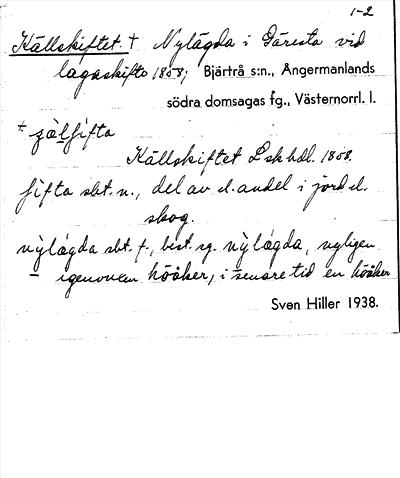 1-2
Källskiftet. + Nylägda i Gäresta vid
lagaskifte 1858; Bjärtrå s:n., Ångermanlands
södra domsagas fg., Västernorrl. l.
Källskiftet L sk hdl. 1858.
sbt. n., del av el. andel i jord el.
skog.
nỳlägda sbt. f., best. sg. nỳlägda, nyligen
igenom en höåker, i senare tid en höåker
Sven Hiller 1938.